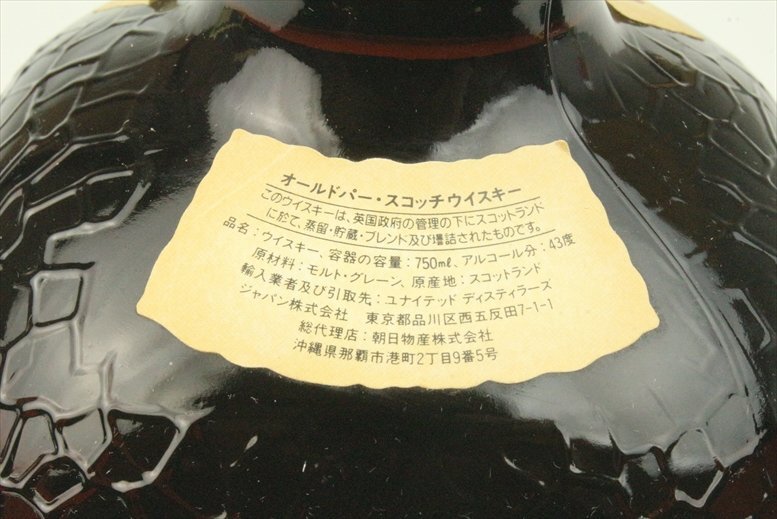 オールドパー・スコッチウイスキー
このウイスキーは、英国政府の管理の下にスコットランド
に於て、蒸留・貯蔵・ブレンド及び壜詰されたものです。
品名：ウイスキー、容器の容量：750mℓ、アルコール分：43度
原材料：モルト・グレーン、原産地：スコットランド
輸入業者及び引取先：ユナイテッド ディスティラーズ
ジャパン株式会社 東京都品川区西五反田7-1-1
総代理店：朝日物産株式会社
沖縄県那覇市港町2丁目9番5号